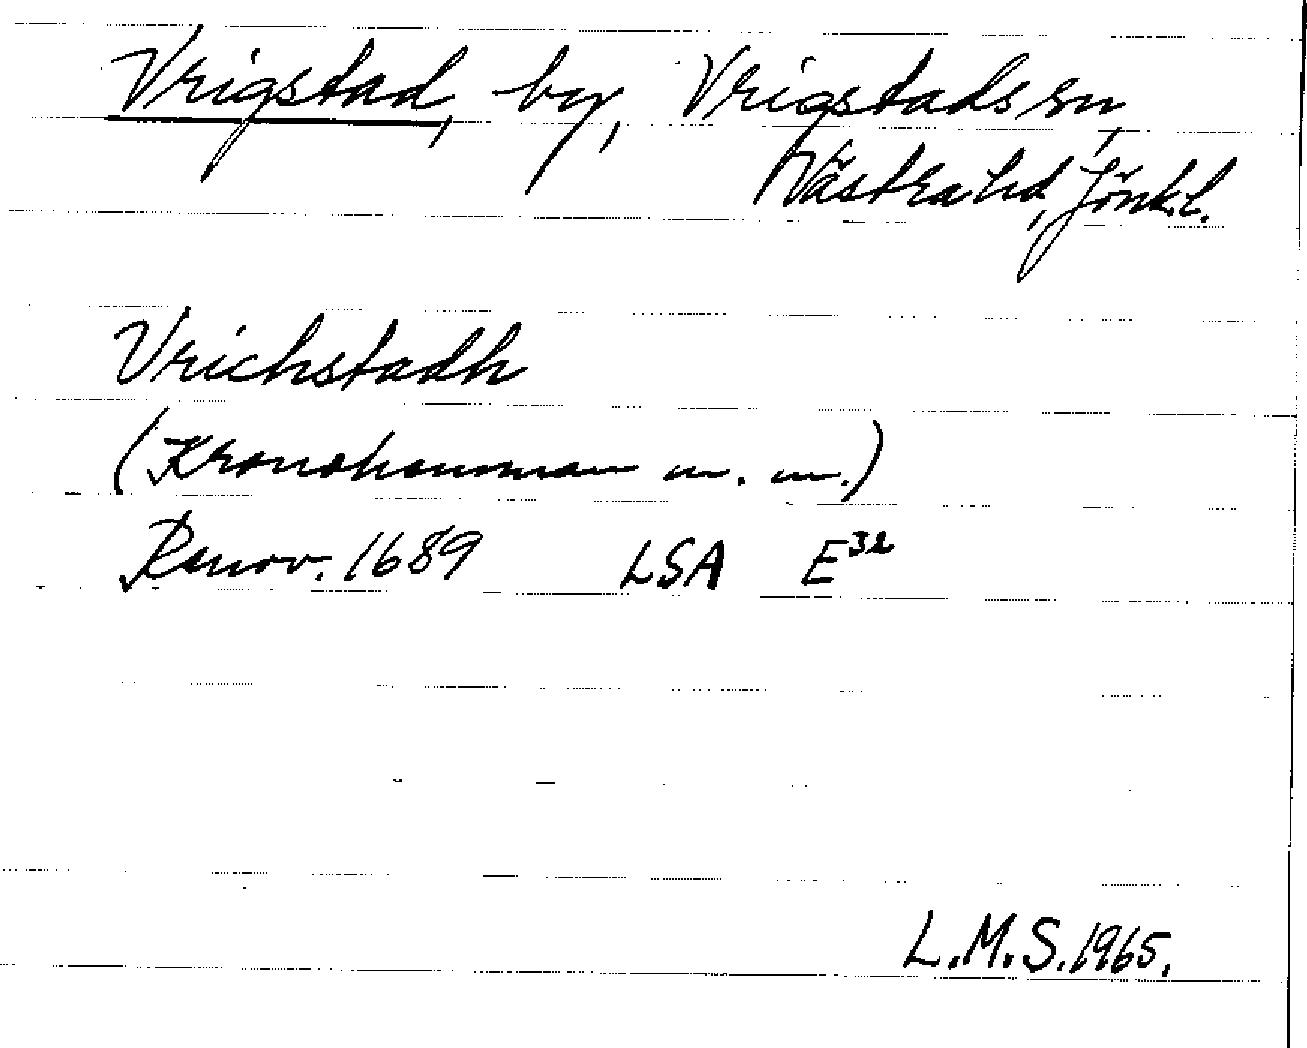 Vrigstad, by, Vrigstads sn,
Västra hd, Jönk.l.
Vrichstadh
(Kronohemman m. m.)
Renov. 1689 LSA E³²
L.M.S. 1965.